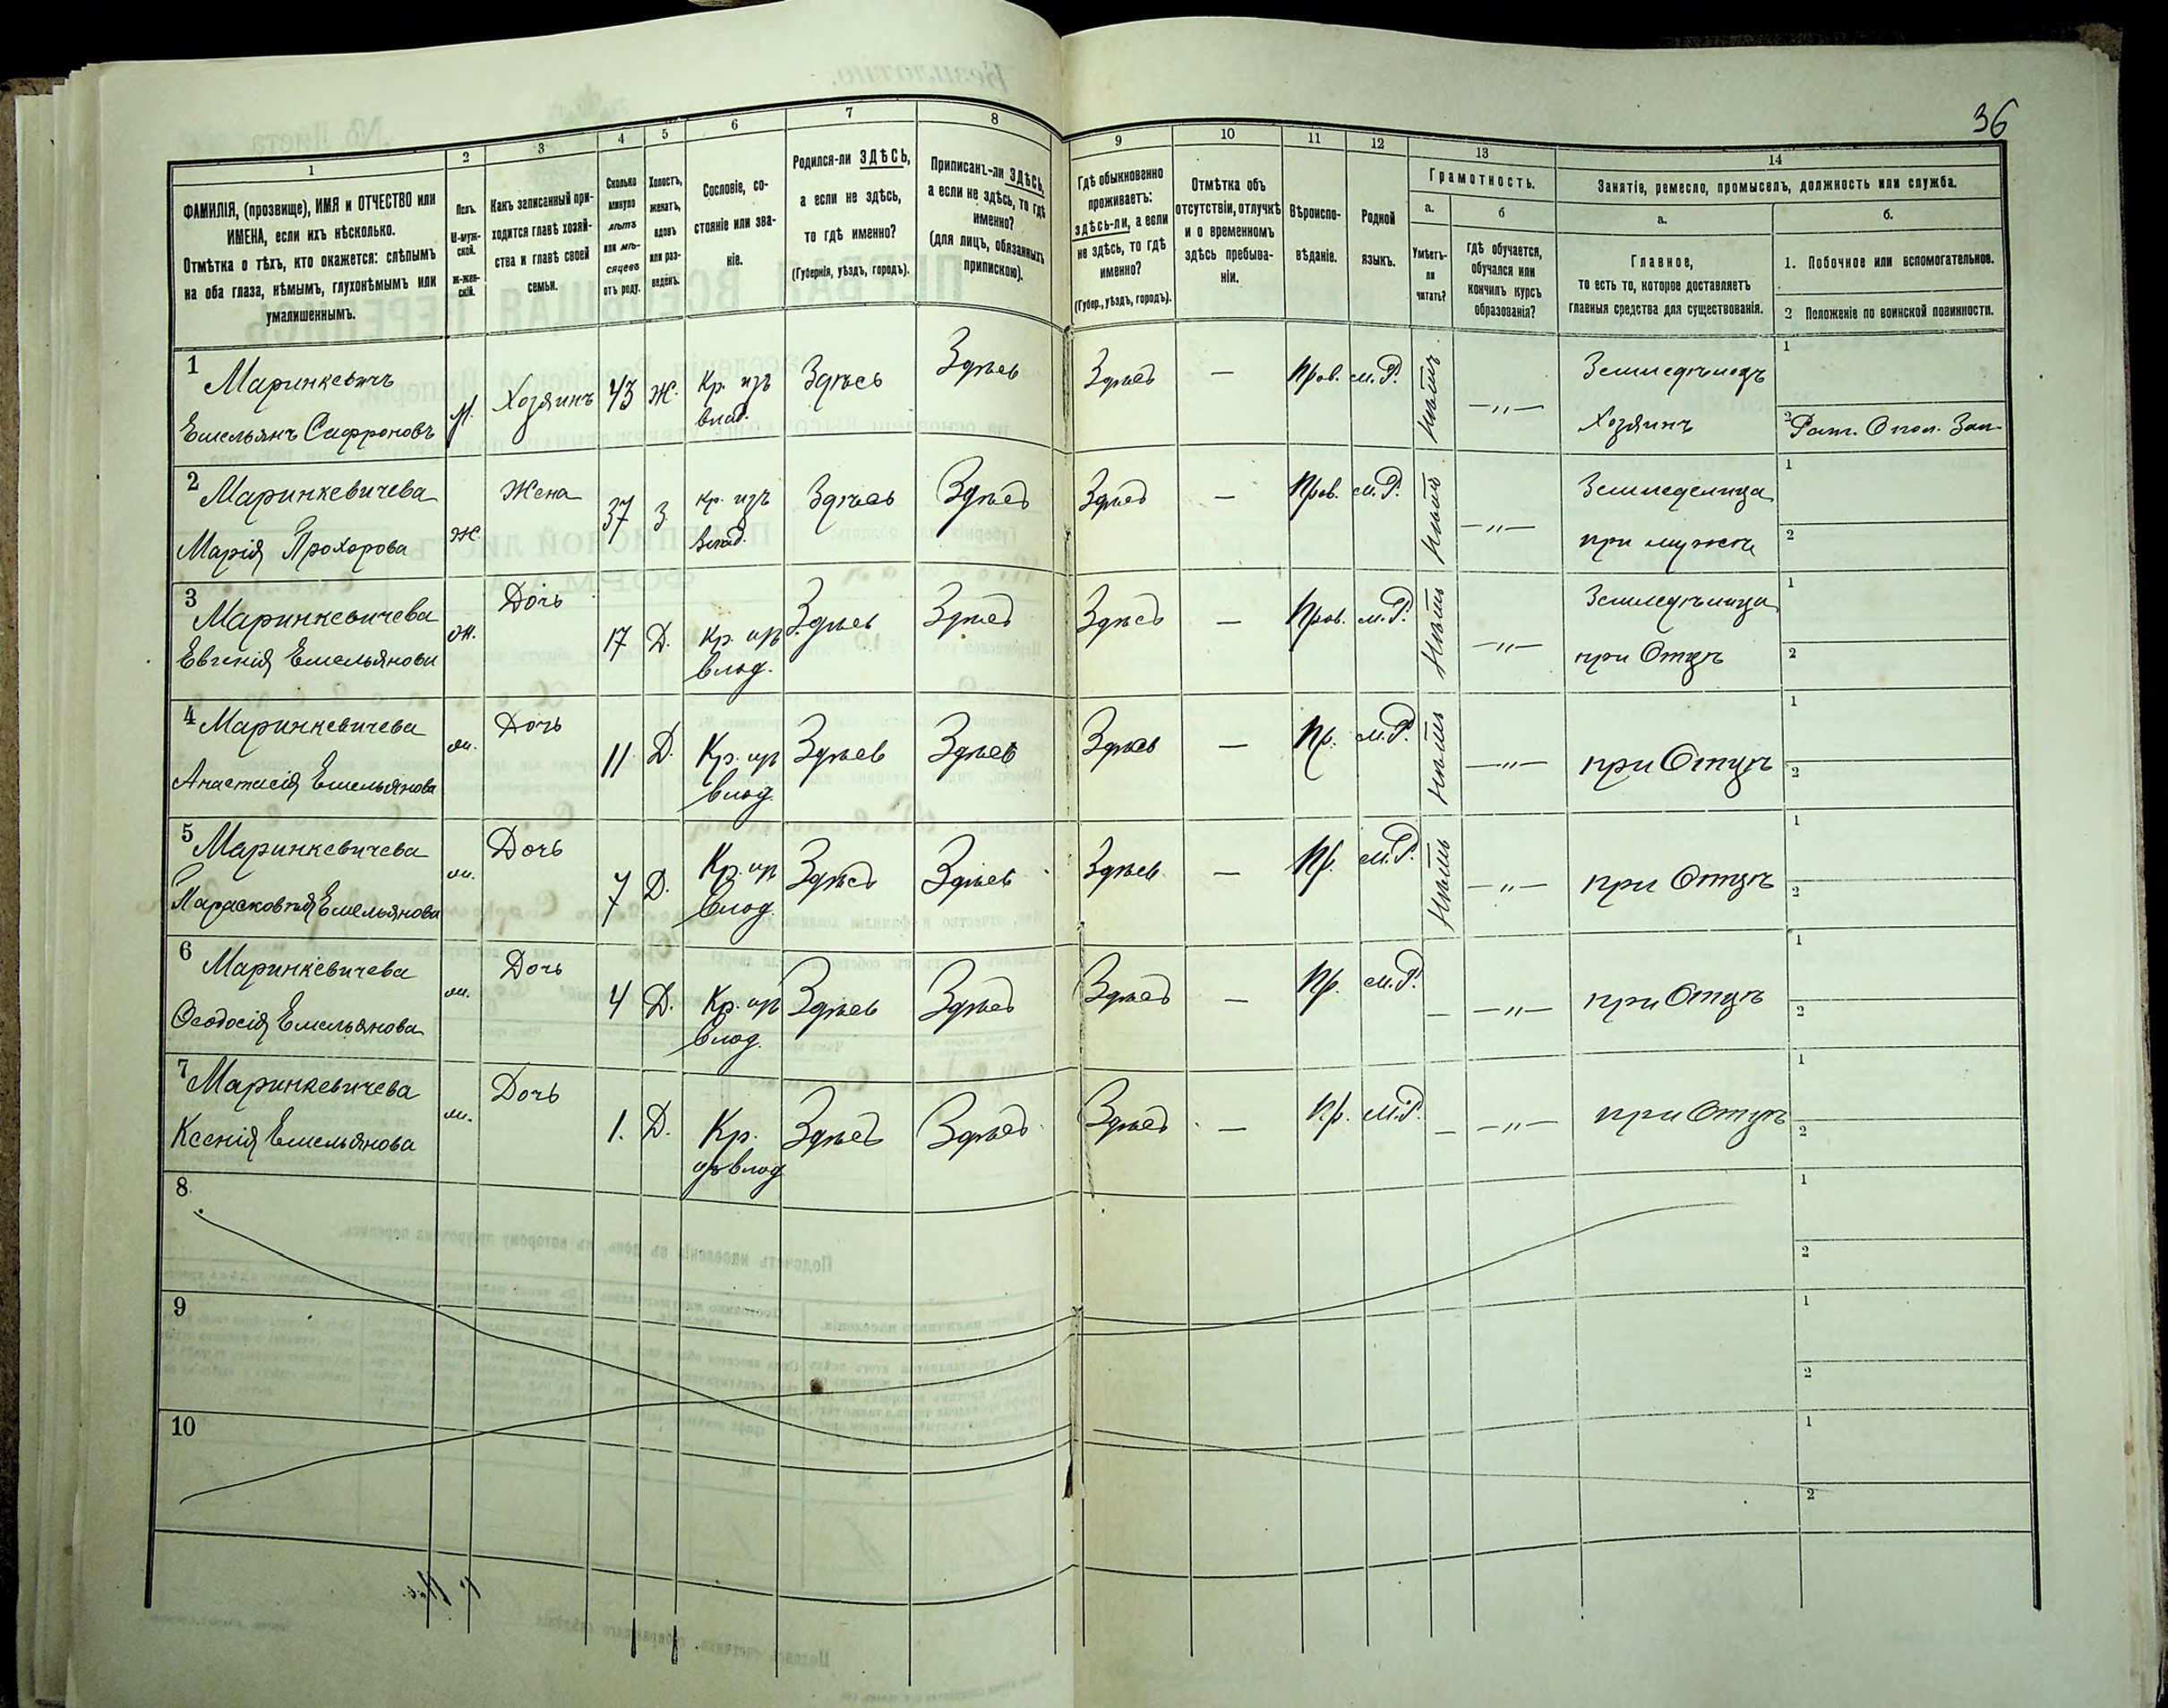 36
1
2
3
4
5
6
7
8
9
10
11
12
13
14
ФАМИЛІЯ, (прозвище), ИМЯ и ОТЧЕСТВО или
ИМЕНА, если ихъ нѣсколько.
Отмѣтка о тѣхъ, кто окажется: слѣпымъ
на оба глаза, нѣмымъ, глухонѣмымъ или
умалишеннымъ.
Полъ.
М-муж-
ской.
Ж-жен-
скій.
Какъ записанный при-
ходится главѣ хозяй-
ства и главѣ своей
семьи.
Сколько
минуло
лѣтъ
или мѣ-
сяцевъ
отъ роду.
Холостъ,
женатъ,
вдовъ
или раз-
веденъ.
Сословіе, со-
стояніе или зва-
ніе.
Родился-ли ЗДѢСЬ,
а если не здѣсь,
то гдѣ именно?
(Губернія, уѣздъ, городъ).
Приписанъ-ли ЗДѢСЬ,
а если не здѣсь, то гдѣ
именно?
(для лицъ, обязанныхъ
припискою).
Гдѣ обыкновенно
проживаетъ:
здѣсь-ли, а если
не здѣсь, то гдѣ
именно?
(Губер., уѣздъ, городъ).
Отмѣтка объ
отсутствіи, отлучкѣ
и о временномъ
здѣсь пребыва-
ніи.
Вѣроиспо-
вѣданіе.
Родной
языкъ.
Грамотность.
а.
б
Умѣетъ-
ли
читать?
гдѣ обучается,
обучался или
кончилъ курсъ
образованія?
Занятіе, ремесло, промыселъ, должность или служба.
а.
б.
Главное,
то есть то, которое доставляетъ
главныя средства для существованія.
1. Побочное или вспомогательное.
2 Положеніе по воинской повинности.
1 Маринкевичъ
Емельянъ Сафроновъ
М. Хозяинъ 43 Ж. Кр. изъ
влад. Здѣсь Здѣсь Здѣсь — Прав. м.Р. Нѣтъ —„— Земледѣлецъ
Хозяинъ 1
2 Рат. Опол. Зап.
2 Маринкевичева
Марія Прохорова
Ж. Жена 37 З. Кр. изъ
Влад. Здѣсь Здѣсь Здѣсь — Прав. м.Р. Нѣтъ —„— Земледелица
при мужѣ 1
2
3 Маринкевичева
Евгенія Емельянова
Ж. Дочь 17 Д. Кр. изъ
влад. Здѣсь Здѣсь Здѣсь — Прав. м.Р. Нѣтъ —„— Земледѣлица
при Отцѣ 1
2
4 Маринкевичева
Анастасія Емельянова
Ж. Дочь 11 Д. Кр. изъ
влад. Здѣсь Здѣсь Здѣсь — Пр. м.Р. Нѣтъ —„— при Отцѣ 1
2
5 Маринкевичева
Парасковія Емельянова
Ж. Дочь 7 Д. Кр. изъ
влад. Здѣсь Здѣсь Здѣсь — Пр. м.Р. Нѣтъ —„— при Отцѣ 1
2
6 Маринкевичева
Ѳеодосія Емельянова
Ж. Дочь 4 Д. Кр. изъ
влад. Здѣсь Здѣсь Здѣсь — Пр. м.Р. — —„— при Отцѣ 1
2
7 Маринкевичева
Ксенія Емельянова
Ж. Дочь 1. Д. Кр.
изъ влад. Здѣсь Здѣсь Здѣсь — Пр. м.Р. — —„— при Отцѣ 1
2
8 1
2
9 1
2
10 1
2